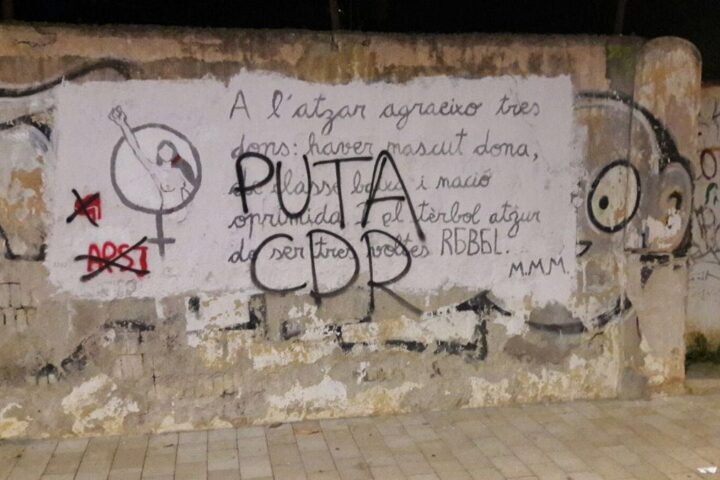 A l'atzar agraeixo tres
dons: haver nascut dona,
de classe baixa i nació
oprimida. I el tèrbol atzur
de ser tres voltes REBEL.
M.M.M.
PUTA
CDR